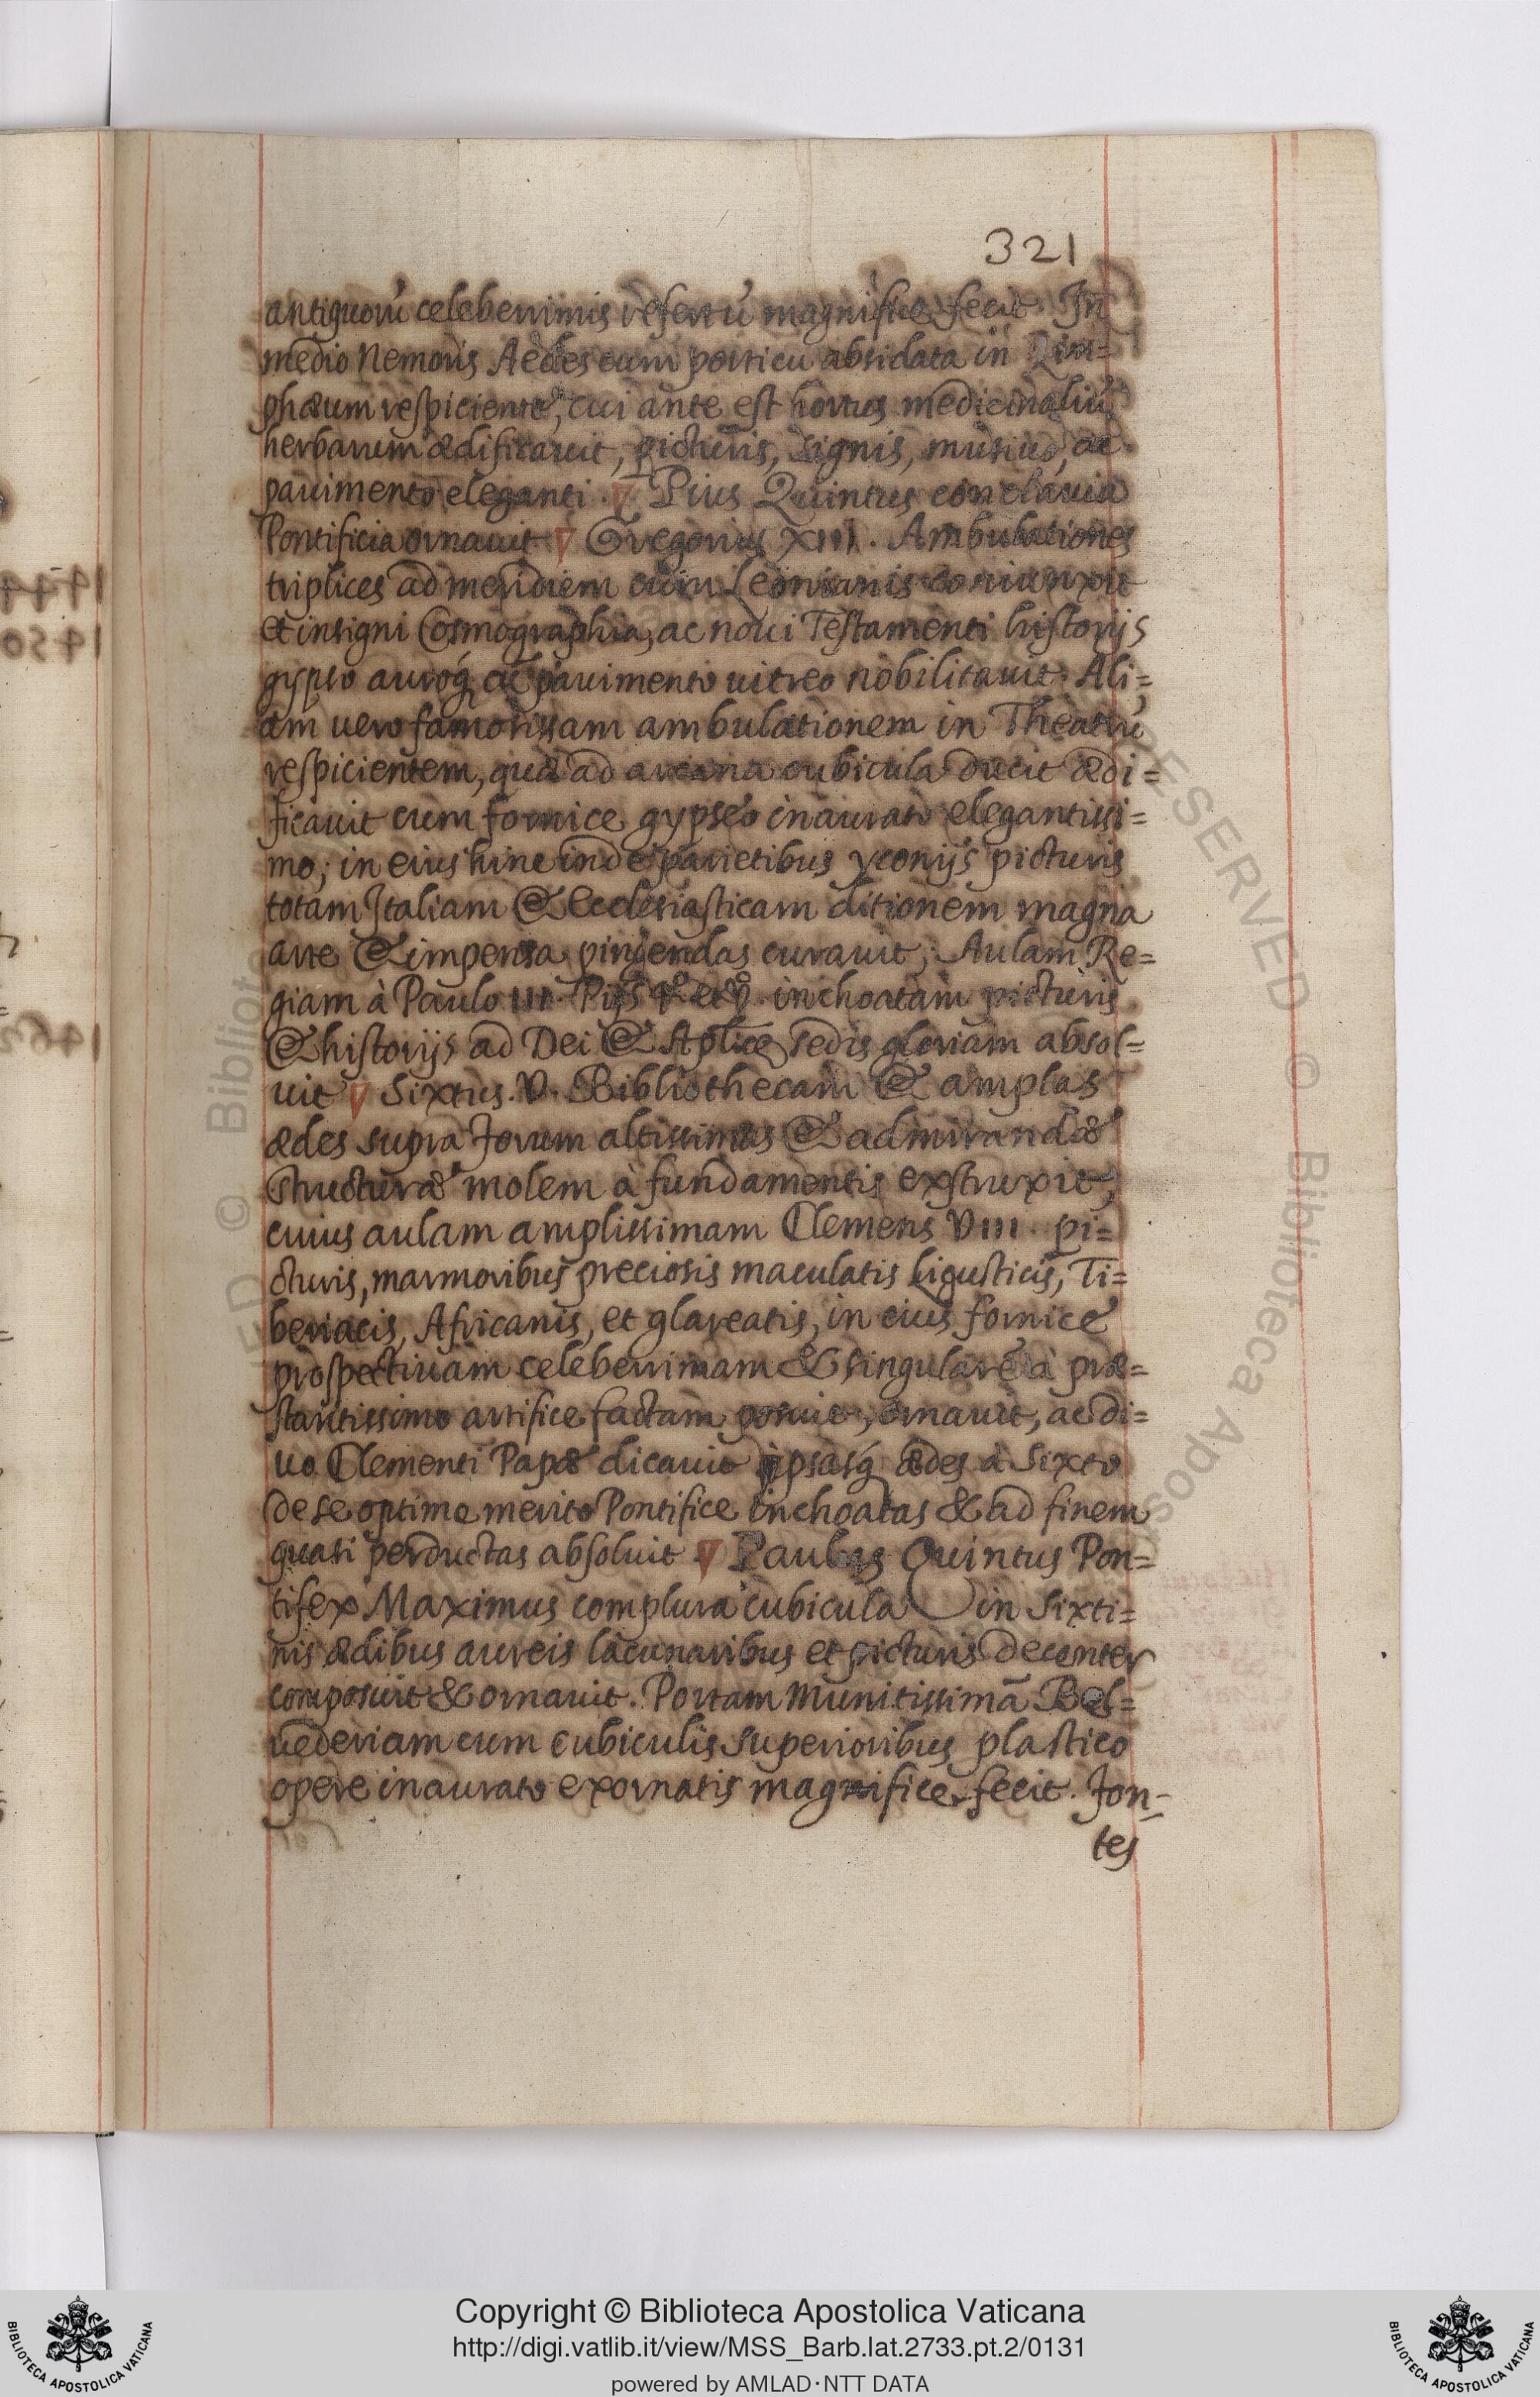 321
antiquorũ celeberrimis refertũ magnifice fecit. In
medio Nemoris Aedes cum porticu absidata in Lim=
phæum respiciente, cui ante est hortus medicinaliũ
herbarum ædificauit, picturis, signis, musiuo, ac
pauimento eleganti. ∇ Pius Quintus conclauia
Pontificia ornauit ∇ Gregorius XIII. Ambulationes
triplices ad meridiem cum Leonianis coniunxit
et insigni Cosmographia, ac noui Testamenti historijs
gypso auroq́ ac pauimento uitreo nobilitauit. Ali=
am uero famosissam ambulationem in Theatrũ
respicientem, quæ ad arcana cubicula ducit ædi=
ficauit cum fornice gypseo inaurato elegantissi=
mo; in eius hinc inde parietibus yconijs picturis
totam Italiam & Ecclesiasticam ditionem magna
arte & impensa pingendas curauit; Aulam Re=
giam à Paulo III. Pijs 4.º et V. inchoatam picturis
& historijs ad Dei & Aplicę sedis gloriam absol=
uit ∇ Sixtus. V. Bibliothecam & amplas
ædes supra forum altissimas & admirandæ
structuræ molem à fundamentis exstruxit;
cuius aulam amplissimam Clemens VIII. pi=
cturis, marmoribus preciosis maculatis Ligusticis, Ti=
beriacis, Africanis, et glareatis, in eius fornice
prospectiuam celeberrimam & singularẽ à præ=
stantissimo artifice factam posuit, ornauit, ac di=
uo Clementi Papæ dicauit ipsasq́ ædes à Sixto
de se optime merito Pontifice inchoatas & ad finem
quasi perductas absoluit ∇ Paulus Quintus Pon=
tifex Maximus complura cubicula in Sixti=
nis ædibus aureis lacunaribus et picturis decenter
composuit & ornauit. Portam munitissimã Bel=
uederiam cum cubiculis superioribus plastico
opere inaurato exornatis magnifice fecit. fon=
tes
1444
1450
146
RESERVED © Biblioteca Apos
© Bibliot
Copyright © Biblioteca Apostolica Vaticana
http://digi.vatlib.it/view/MSS_Barb.lat.2733.pt.2/0131
powered by AMLAD·NTT DATA
BIBLIOTECA APOSTOLICA VATICANA
BIBLIOTECA APOSTOLICA VATICANA